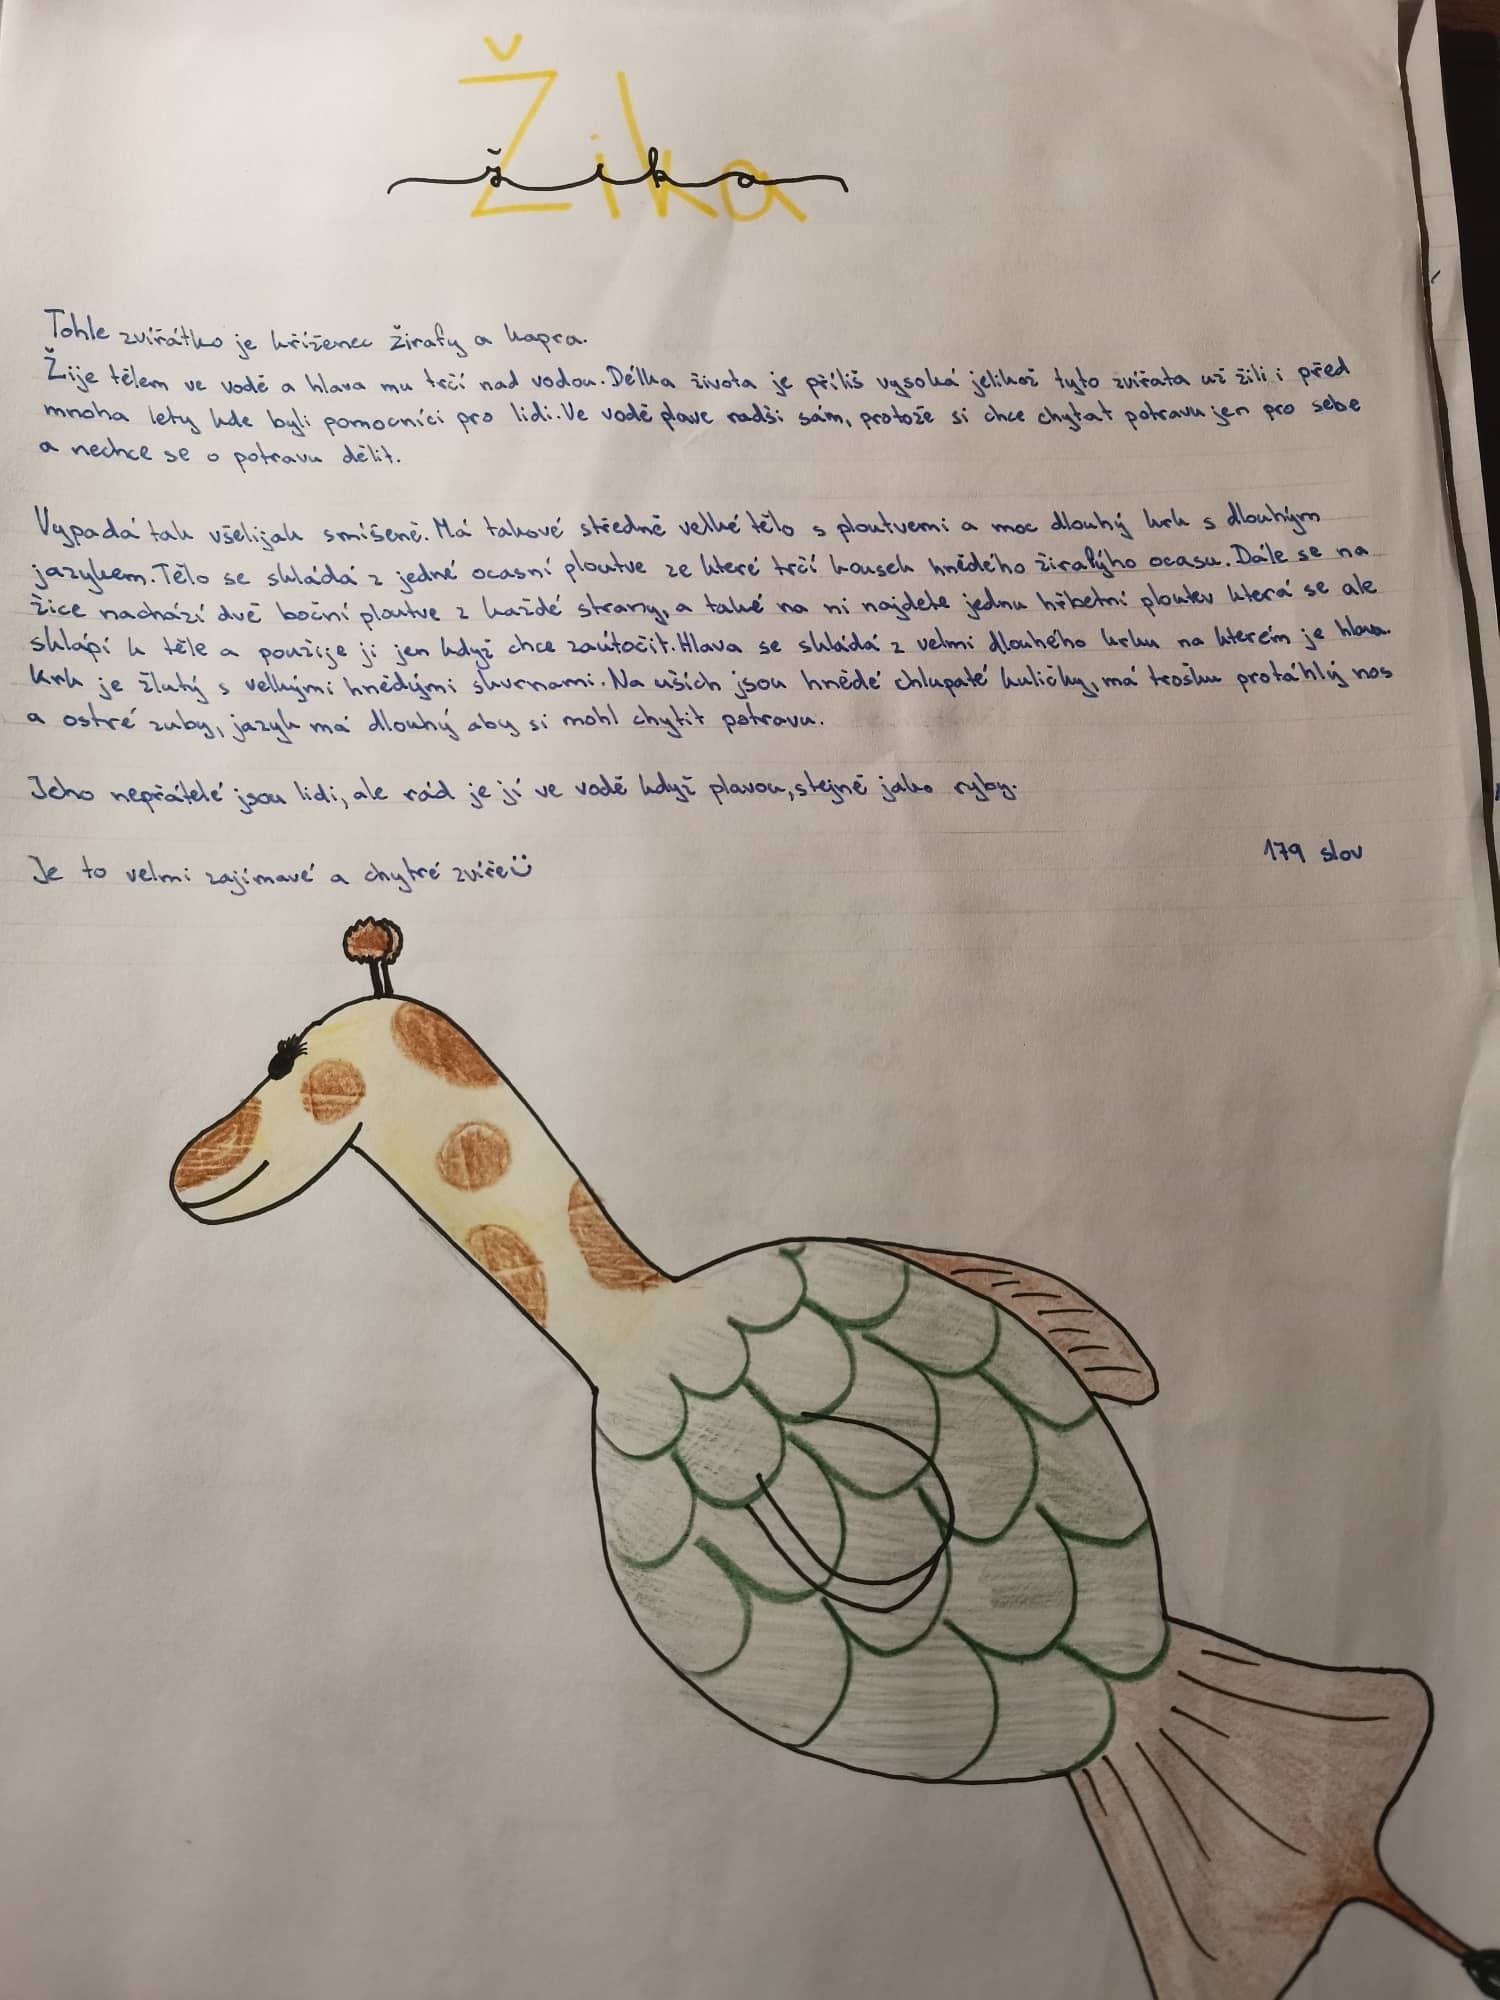 Žika
žika
Tohle zvířátko je kříženec žirafy a kapra.
Žije tělem ve vodě a hlava mu trčí nad vodou. Délka života je příliš vysoká jelikož tyto zvířata už žili i před
mnoha lety kde byli pomocníci pro lidi. Ve vodě plave radši sám, protože si chce chytat potravu jen pro sebe
a nechce se o potravu dělit.
Vypadá tak všelijak smíšeně. Má takové středně velké tělo s ploutvemi a moc dlouhý krk s dlouhým
jazykem. Tělo se skládá z jedné ocasní ploutve ze které trčí kousek hnědého žirafýho ocasu. Dále se na
žice nachází dvě boční ploutve z každé strany, a také na ni najdete jednu hřbetní ploutev která se ale
sklápí k těle a použije ji jen když chce zaútočit. Hlava se skládá z velmi dlouhého krku na kterém je hlava.
Krk je žlutý s velkými hnědými skvrnami. Na uších jsou hnědé chlupaté kuličky, má trošku protáhlý nos
a ostré zuby, jazyk má dlouhý aby si mohl chytit potravu.
Jeho nepřátelé jsou lidi, ale rád je jí ve vodě když plavou, stejně jako ryby.
Je to velmi zajímavé a chytré zvíře
179 slov